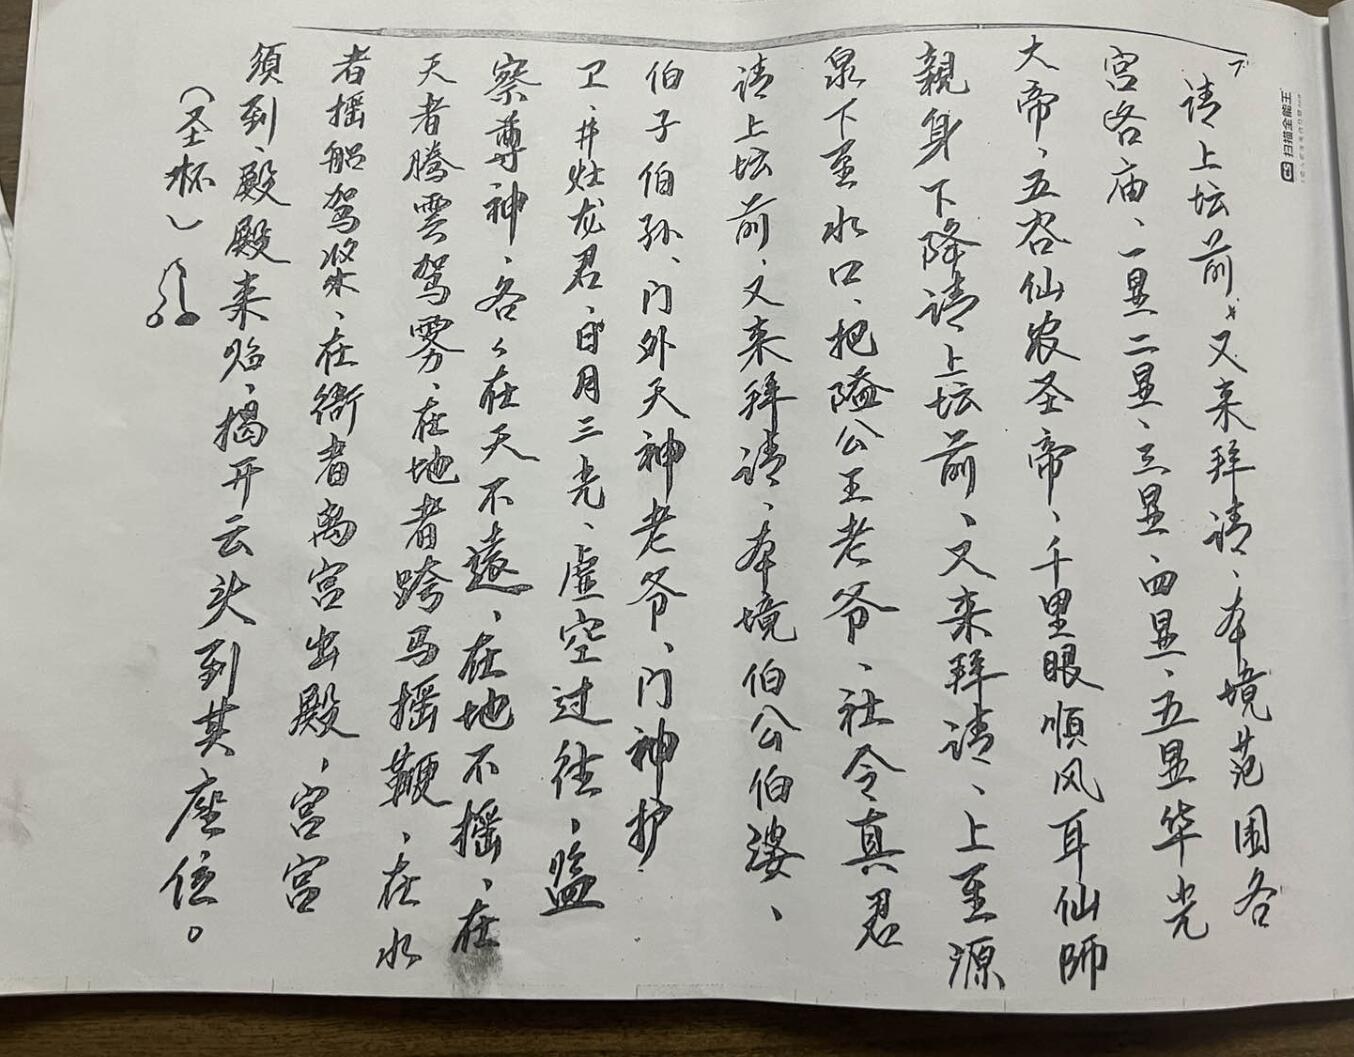 请上坛前、又来拜请、本境范围各
宫各庙、一显二显、三显、四显、五显华光
大帝、五谷仙农圣帝、千里眼顺风耳仙師
親身下降请上坛前、又来拜请、上至源
泉下至水口、把隘公王老爷、社令真君
请上坛前、又来拜请、本境伯公伯婆、
伯子伯孙、门外天神老爷、门神护
卫、井灶龙君、日月三光、虚空过往、監
察尊神、各々在天不遠、在地不摇、在
天者腾雲驾雾、在地者跨马摇鞭、在水
者摇船驾桨、在衙者离宫出殿、宫宫
須到、殿殿来临、揭开云头到其座位。
（圣杯）
扫描全能王